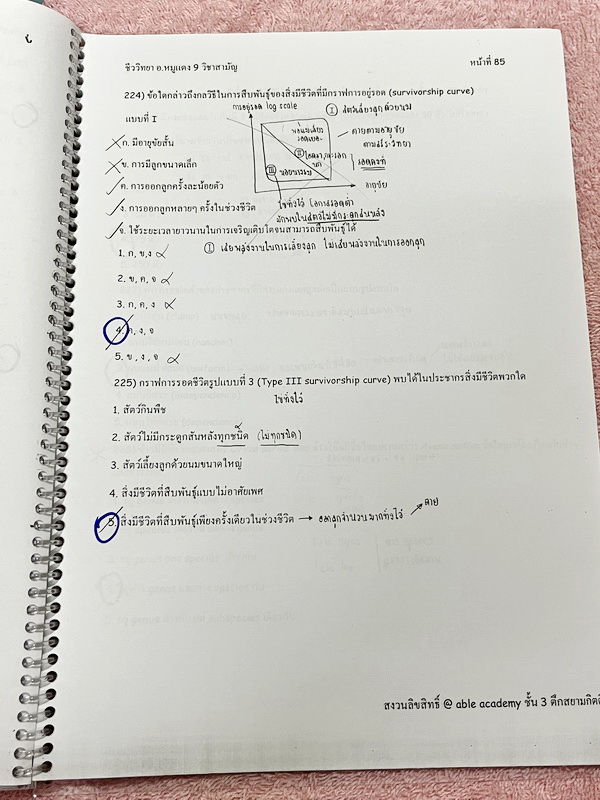 ชีววิทยา อ.หมูแดง 9 วิชาสามัญ
หน้าที่ 85
224) ข้อใดกล่าวถึงกลวิธีในการสืบพันธุ์ของสิ่งมีชีวิตที่มีกราฟการอยู่รอด (survivorship curve)
แบบที่ I
การอยู่รอด log scale
I สัตว์เลี้ยงลูกด้วยนม
ตายตามอายุขัย
ตามสรีรวิทยา
พ่อแม่เลี้ยง
รอดเยอะ
II
นก
รอดคงที่
III
หอยนางรม
อายุขัย
ก. มีอายุขัยสั้น
ข. การมีลูกขนาดเล็ก
ค. การออกลูกครั้งละน้อยตัว
ง. การออกลูกหลายๆ ครั้งในช่วงชีวิต
ไข่ทิ้งไว้ โอกาสรอดต่ำ
มักพบในสัตว์ไม่มีกระดูกสันหลัง
จ. ใช้ระยะเวลายาวนานในการเจริญเติบโตจนสามารถสืบพันธุ์ได้
I เสียพลังงานในการเลี้ยงลูก ไม่เสียพลังงานในการออกลูก
1. ก, ข,ง
2. ข, ค, จ
3. ก, ค, ง
4. ค, ง, จ
5. ข , ง , จ
225) กราฟการรอดชีวิตรูปแบบที่ 3 (Type III survivorship curve) พบได้ในประชากรสิ่งมีชีวิตพวกใด
ไข่ทิ้งไว้
1. สัตว์กินพืช
2. สัตว์ไม่มีกระดูกสันหลังทุกชนิด (ไม่ทุกชนิด)
3. สัตว์เลี้ยงลูกด้วยนมขนาดใหญ่
4. สิ่งมีชีวิตที่สืบพันธุ์แบบไม่อาศัยเพศ
5. สิ่งมีชีวิตที่สืบพันธุ์เพียงครั้งเดียวในช่วงชีวิต → ออกลูกจำนวนมากทิ้งไว้ → ตาย
สงวนลิขสิทธิ์ @ able academy ชั้น 3 ตึกสยามกิตติ